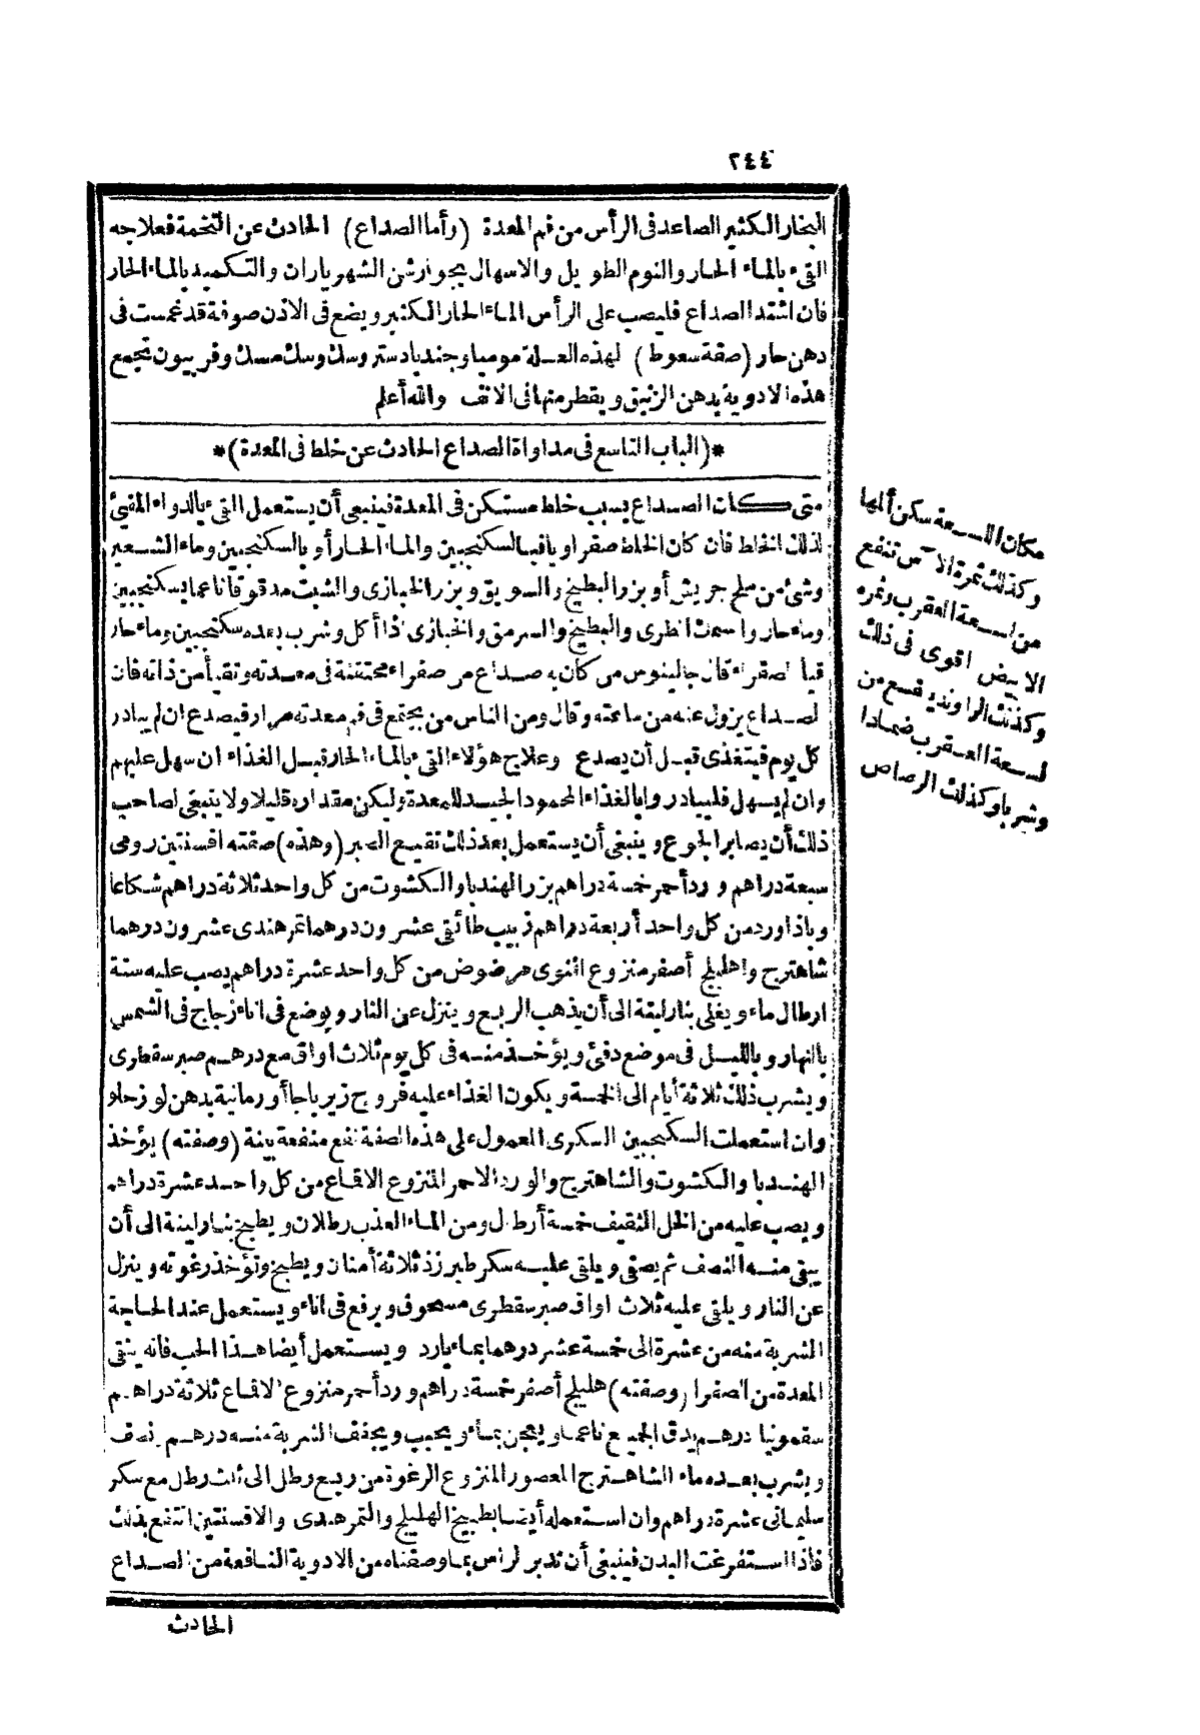 ٢٤٤
البخار الكثير الصاعد فى الرأس من فم المعدة (وأما الصداع) الحادث عن التخمة فعلاجه
القىء بالماء الحار والنوم الطويل والاسهال بجوارشن الشهرياران والتكميد بالماء الحار
فان اشتد الصداع فليصب على الرأس الماء الحار الكثير ويضع فى الاذن صوفة قد غمست فى
دهن حار (صفة سعوط) لهذه العلة موميا وجندبادستر وسك وسك مسك وفربيون تجمع
هذه الادوية بدهن الزنبق ويقطر منها فى الانف والله أعلم
*(الباب التاسع فى مداواة الصداع الحادث عن خلط فى المعدة)*
متى كان الصداع بسبب خلط مستكن فى المعدة فينبغى أن يستعمل القىء بالدواء المقيئ
لذلك الخلط فان كان الخلط صفراويا فبالسكنجبين والماء الحار أو بالسكنجبين وماء الشعير
وشئ من ملح جريش أو بزر البطيخ والسويق وبزر الخبازى والشبت مدقوقا ناعما بسكنجبين
وماء حار والسمك الطرى والبطيخ والسرمق والخبازى اذا أكل وشرب بعده سكنجبين وماء حار
قيأ الصفراء قال جالينوس من كان به صداع من صفراء محتقنة فى معدته وتقيأ من ذاته فان
الصداع يزول عنه من ساعته وقال ومن الناس من يجتمع فى فم معدته مرار فيصدع ان لم يبادر
كل يوم فيتغذى قبل أن يصدع وعلاج هؤلاء القىء بالماء الحار قبل الغذاء ان سهل عليهم
وان لم يسهل فليبادروا بالغذاء المحمود الجيد للمعدة وليكن مقداره قليلا ولا ينبغى لصاحب
ذلك أن يصابر الجوع وينبغى أن يستعمل بعد ذلك نقيع الصبر (وهذه) صفته افسنتين رومى
سبعة دراهم ورد أحمر خمسة دراهم بزر الهندبا والكشوت من كل واحد ثلاثة دراهم شكاعا
وباذاورد من كل واحد أربعة دراهم زبيب طائفى عشرون درهما تمر هندى عشرون درهما
شاهترج واهليلج أصفر منزوع النوى مرضوض من كل واحد عشرة دراهم يصب عليه ستة
ارطال ماء ويغلى بنار لينة الى أن يذهب الربع وينزل عن النار ويوضع فى اناء زجاج فى الشمس
بالنهار وبالليل فى موضع دفئ ويؤخذ منه فى كل يوم ثلاث اواق مع درهم صبر سقطرى
ويشرب ذلك ثلاثة أيام الى الخمسة ويكون الغذاء عليه فروج زيرباجا أو رمانية بدهن لوز حلو
وان استعملت السكنجبين السكرى المعمول على هذه الصفة نفع منفعة بينة (وصفته) يؤخذ
الهندبا والكشوت والشاهترج والورد الاحمر المنزوع الاقماع من كل واحد عشرة دراهم
ويصب عليه من الخل الثقيف خمسة أرطال ومن الماء العذب رطلان ويطبخ بنار لينة الى أن
يبقى منه النصف ثم يصفى ويلقى عليه سكر طبرزذ ثلاثة أمنان ويطبخ وتؤخذ رغوته وينزل
عن النار ويلقى عليه ثلاث اواق صبر سقطرى مسحوق ويرفع فى اناء ويستعمل عند الحاجة
الشربة منه من عشرة الى خمسة عشر درهما بماء بارد ويستعمل أيضا هذا الحب فانه ينقى
المعدة من الصفرا (وصفته) هليلج أصفر خمسة دراهم ورد أحمر منزوع الاقماع ثلاثة دراهم
سقمونيا درهم يدق الجميع ناعما ويعجن بماء ويحبب ويجفف الشربة منه درهم ونصف
ويشرب بعده ماء الشاهترج المعصور المنزوع الرغوة من ربع رطل الى ثلث رطل مع سكر
سليمانى عشرة دراهم وان استعمله أيضا بطبيخ الهليلج والتمر هندى والافسنتين انتفع بذلك
فاذا استفرغت البدن فينبغى أن تدبر الرأس بما وصفناه من الادوية النافعة من الصداع
الحادث
مكان اللسعة سكن ألمها
وكذلك ثمرة الآس تنفع
من لسعة العقرب وثمره
الابيض اقوى فى ذلك
وكذلك الراوند ينفع من
لسعة العقرب ضمادا
وشربا وكذلك الرصاص